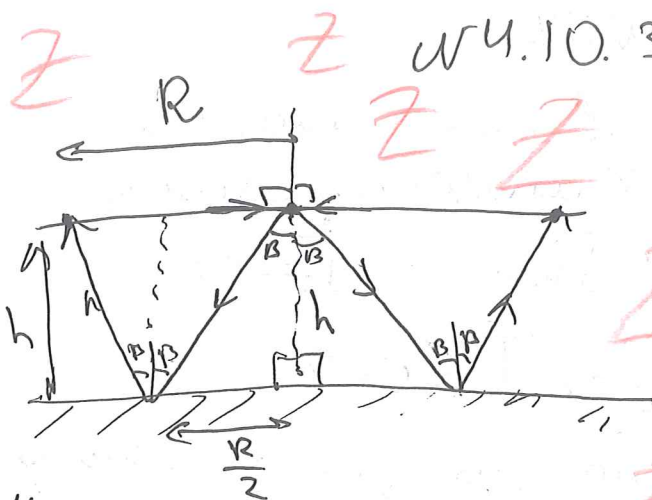 Z Z №4.10.3
R Z Z
β β
h h
β β β β
R/2